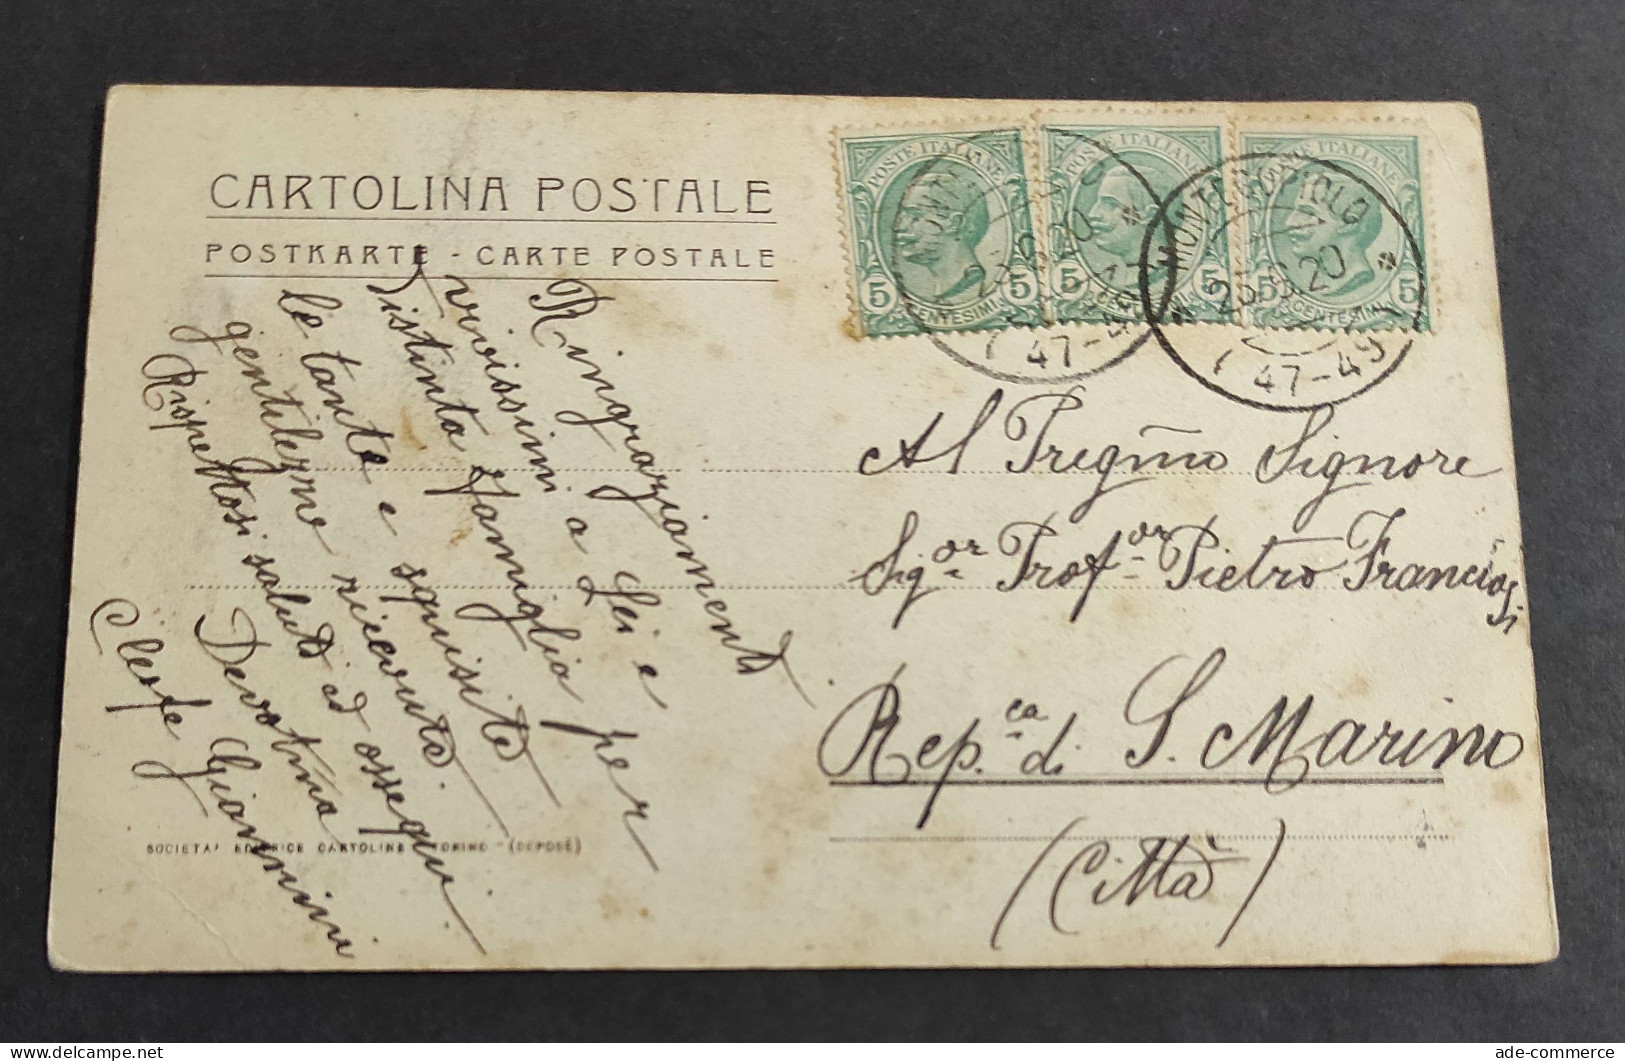 CARTOLINA POSTALE
POSTKARTE - CARTE POSTALE
POSTE ITALIANE
5 CENTESIMI 5
POSTE ITALIANE
5 5
POSTE ITALIANE
5 CENTESIMI 5
MONTE
20
47-49
MONTEGRIZIOLO
20
47-49
Ringraziamenti
vivissimi a Lei e
distinta Famiglia per
le tante e squisite
gentilezze ricevute.
Rispettosi saluti ed ossequi.
Devotma
Giannini
Al Pregmo Signore
Sigor Profor Pietro Franciosi
Repca di S. Marino
(Città)
SOCIETA' EDITRICE CARTOLINE TORINO - (DEPOSÉ)
ade-commerce
delcampe.net